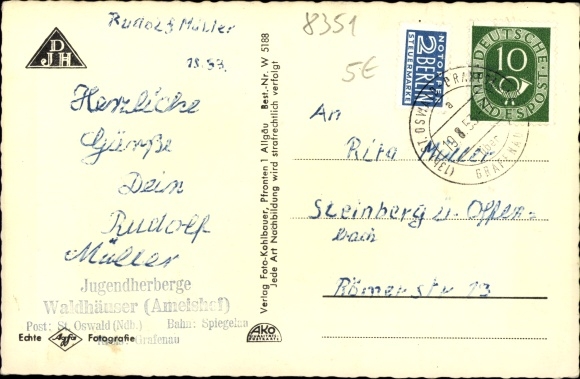 DJH
Rudolf Müller
8351
5€
Herzliche
Grüße
Dein
Rudolf
Müller
Jugendherberge
Waldhäuser (Ameishof)
Post: St. Oswald (Ndb.) Bahn: Spiegelau
Grafenau
Echte Agfa Fotografie
Verlag Foto-Kohlbauer, Pfronten 1 Allgäu Best.-Nr. W 5188
Jede Art Nachbildung wird strafrechtlich verfolgt
AKO
POSTKARTE
NOTOPFER
2 BERLIN
STEUERMARKE
DEUTSCHE
10
BUNDESPOST
ST. OSWALD
GRAFENAU
19.8.53
a
An
Rita Müller
Steinberg u. Offen-
bach
Römerstr 13